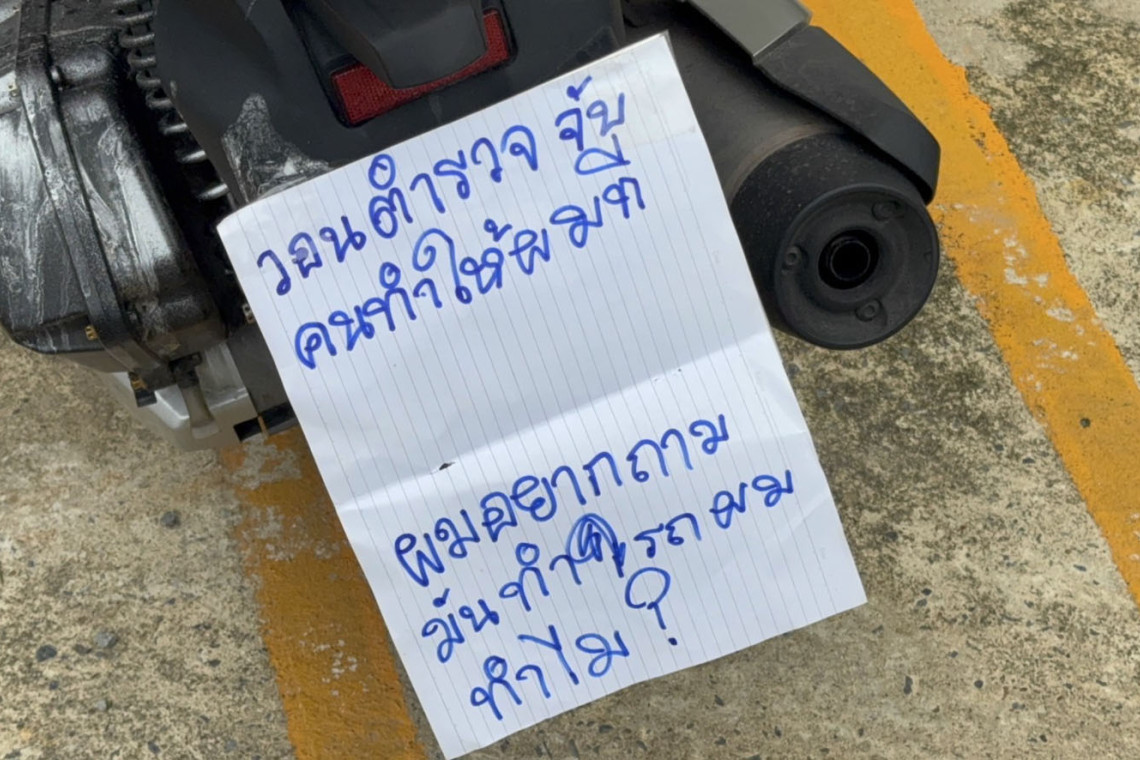 วอนตำรวจ จับ
คนทำให้ผมที
ผมอยากถาม
มันทำ รถผม
ทำไม ?